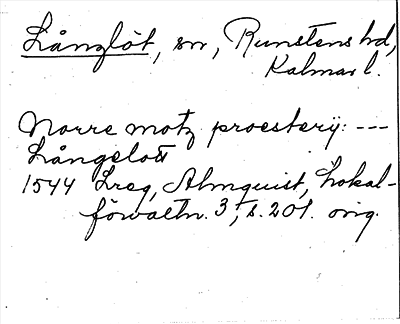 Långlöt, sn, Runstens hd,
Kalmar l.
Norre motz proestery: ---
Långelött
1544 Lreg, Almquist, Lokal-
förvaltn. 3, s. 201. orig.